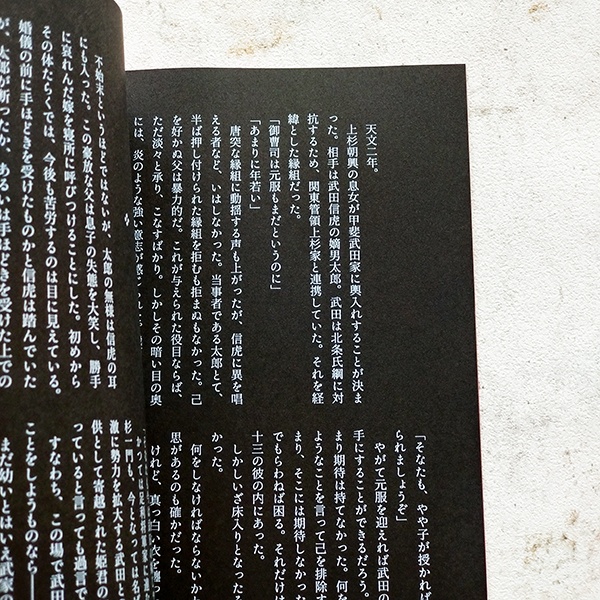 天文二年。
上杉朝興の息女が甲斐武田家に輿入れすることが決ま
った。相手は武田信虎の嫡男太郎。武田は北条氏綱に対
抗するため、関東管領上杉家と連携していた。それを経
緯とした縁組だった。
「御曹司は元服もまだというのに」
「あまりに年若い」
唐突な縁組に動揺する声も上がったが、信虎に異を唱
える者など、いはしなかった。当事者である太郎とて、
半ば押し付けられた縁組を拒むも拒まぬもなかった。己
を好かぬ父は暴力的だ。これが与えられた役目ならば、
ただ淡々と承り、こなすばかり。しかしその暗い目の奥
には、炎のような強い意志が
「そなたも、やや子が授かれば
られましょうぞ」
やがて元服を迎えれば武田の
手にすることができるだろう。
まり期待は持てなかった。何を
ようなことを言って己を排除す
まり、そこには期待しなかった
でもらわねば困る。それだけ
十三の彼の内にあった。
しかしいざ床入りとなった
かった。
何をしなければならないか
思があるのも確かだった。
けれど、真っ白
不始末というほどではないが、太郎の無様は信虎の耳
にも入った。この豪放な父は息子の失態を大笑し、勝手
に哀れんだ嫁を寝所に呼びつけることにした。初めから
その体たらくでは、今後も苦労するのは目に見えている。
婚儀の前に手ほどきを受けたものかと信虎は踏んでいた
が、太郎が断ったか、あるいは手ほどきを受けた上での
杉一門も、今となっては名ば
激に勢力を拡大する武田と
供として寄越された姫君の
っていると言っても過言で
すなわち、この場で武田
ことをしようものなら――
まだ幼いとはいえ武家